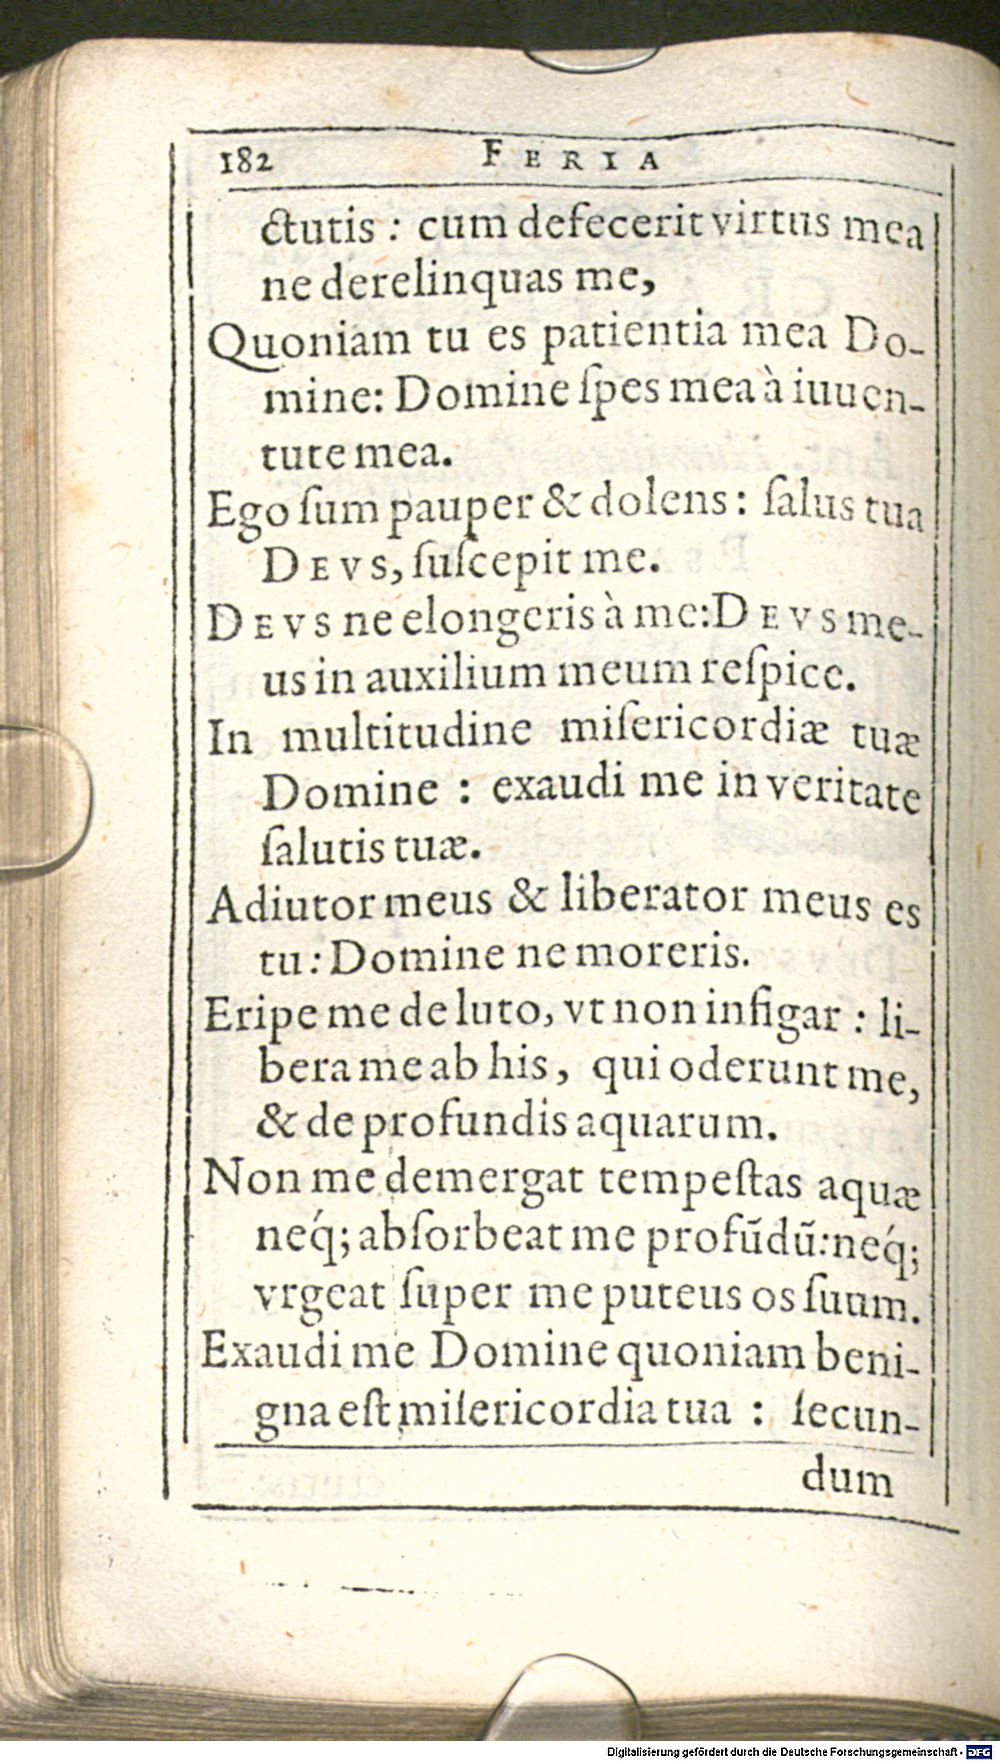 182 FERIA
ctutis : cum defecerit virtus mea
ne derelinquas me,
Quoniam tu es patientia mea Do-
mine: Domine ſpes mea à iuuen-
tute mea.
Ego ſum pauper & dolens : ſalus tua
DEVS, ſuſcepit me.
DEVS ne elongeris à me: DEVS me-
us in auxilium meum reſpice.
In multitudine miſericordiæ tuæ
Domine : exaudi me in veritate
ſalutis tuæ.
Adiutor meus & liberator meus es
tu: Domine ne moreris.
Eripe me de luto, vt non infigar : li-
bera me ab his, qui oderunt me,
& de profundis aquarum.
Non me demergat tempeſtas aquæ
neq́; abſorbeat me profũdũ: neq́;
vrgeat ſuper me puteus os ſuum.
Exaudi me Domine quoniam beni-
gna eſt miſericordia tua : ſecun-
dum
Digitalisierung gefördert durch die Deutsche Forschungsgemeinschaft - DFG